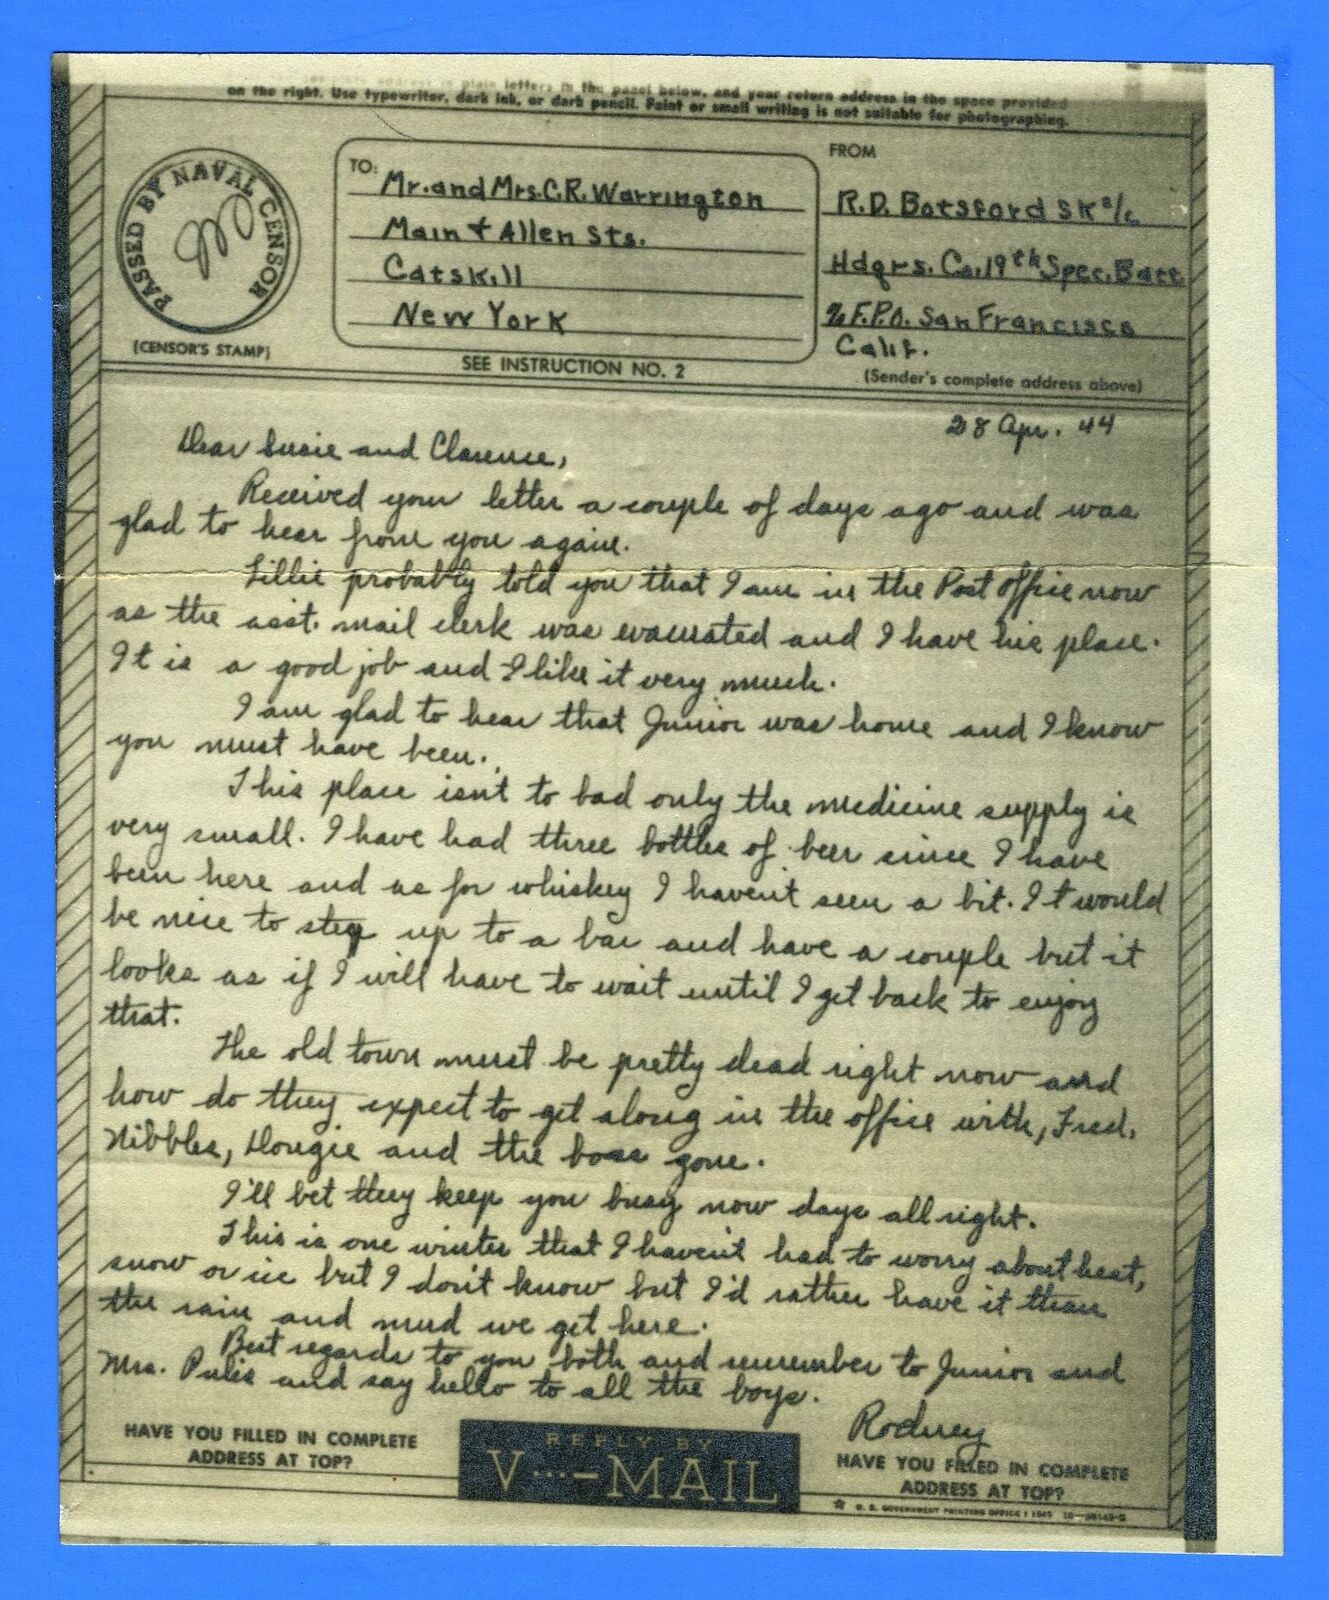 letters in the panel below, and your return address in the space provided
on the right. Use typewriter, dark ink, or dark pencil. Faint or small writing is not suitable for photographing.
PASSED BY NAVAL CENSOR
(CENSOR'S STAMP)
TO: Mr. and Mrs. C.R. Warrington
Main + Allen Sts.
Catskill
New York
SEE INSTRUCTION NO. 2
FROM
R.D. Botsford SK 2/c
Hdqrs. Co. 19th Spec. Batt
% F.P.O. San Francisco
Calif.
(Sender's complete address above)
28 Apr. 44
Dear Susie and Clarence,
Received your letter a couple of days ago and was
glad to hear from you again.
Lillie probably told you that I am in the Post office now
as the asst. mail clerk was evacuated and I have his place.
It is a good job and I like it very much.
I am glad to hear that Junior was home and I know
you must have been.
This place isn't to bad only the medicine supply is
very small. I have had three bottles of beer since I have
been here and as for whiskey I haven't seen a bit. It would
be nice to step up to a bar and have a couple but it
looks as if I will have to wait until I get back to enjoy
that.
The old town must be pretty dead right now and
how do they expect to get along in the office with, Fred,
Nibbles, Dougie and the boss gone.
I'll bet they keep you busy now days all right.
This is one winter that I haven't had to worry about heat,
snow or ice but I don't know but I'd rather have it than
the rain and mud we get here.
Best regards to you both and remember to Junior and
Mrs. Pulis and say hello to all the boys.
Rodney
HAVE YOU FILLED IN COMPLETE
ADDRESS AT TOP?
REPLY BY
V···—MAIL
HAVE YOU FILLED IN COMPLETE
ADDRESS AT TOP?
☆ U. S. GOVERNMENT PRINTING OFFICE : 1943